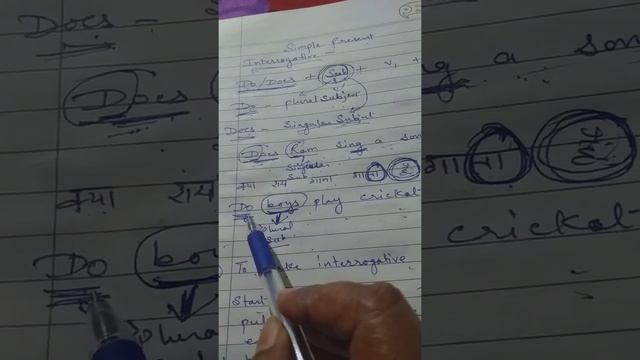 Simple Present
Interrogative
Do/Does + Sub + V1 +
Do - plural Subject
Does - Singular Subject
Does Ram sing a son
Singular
Sub
क्या राम गाना गाता है
Do boys play cricket
plural
Sub
To make interrogative
Start